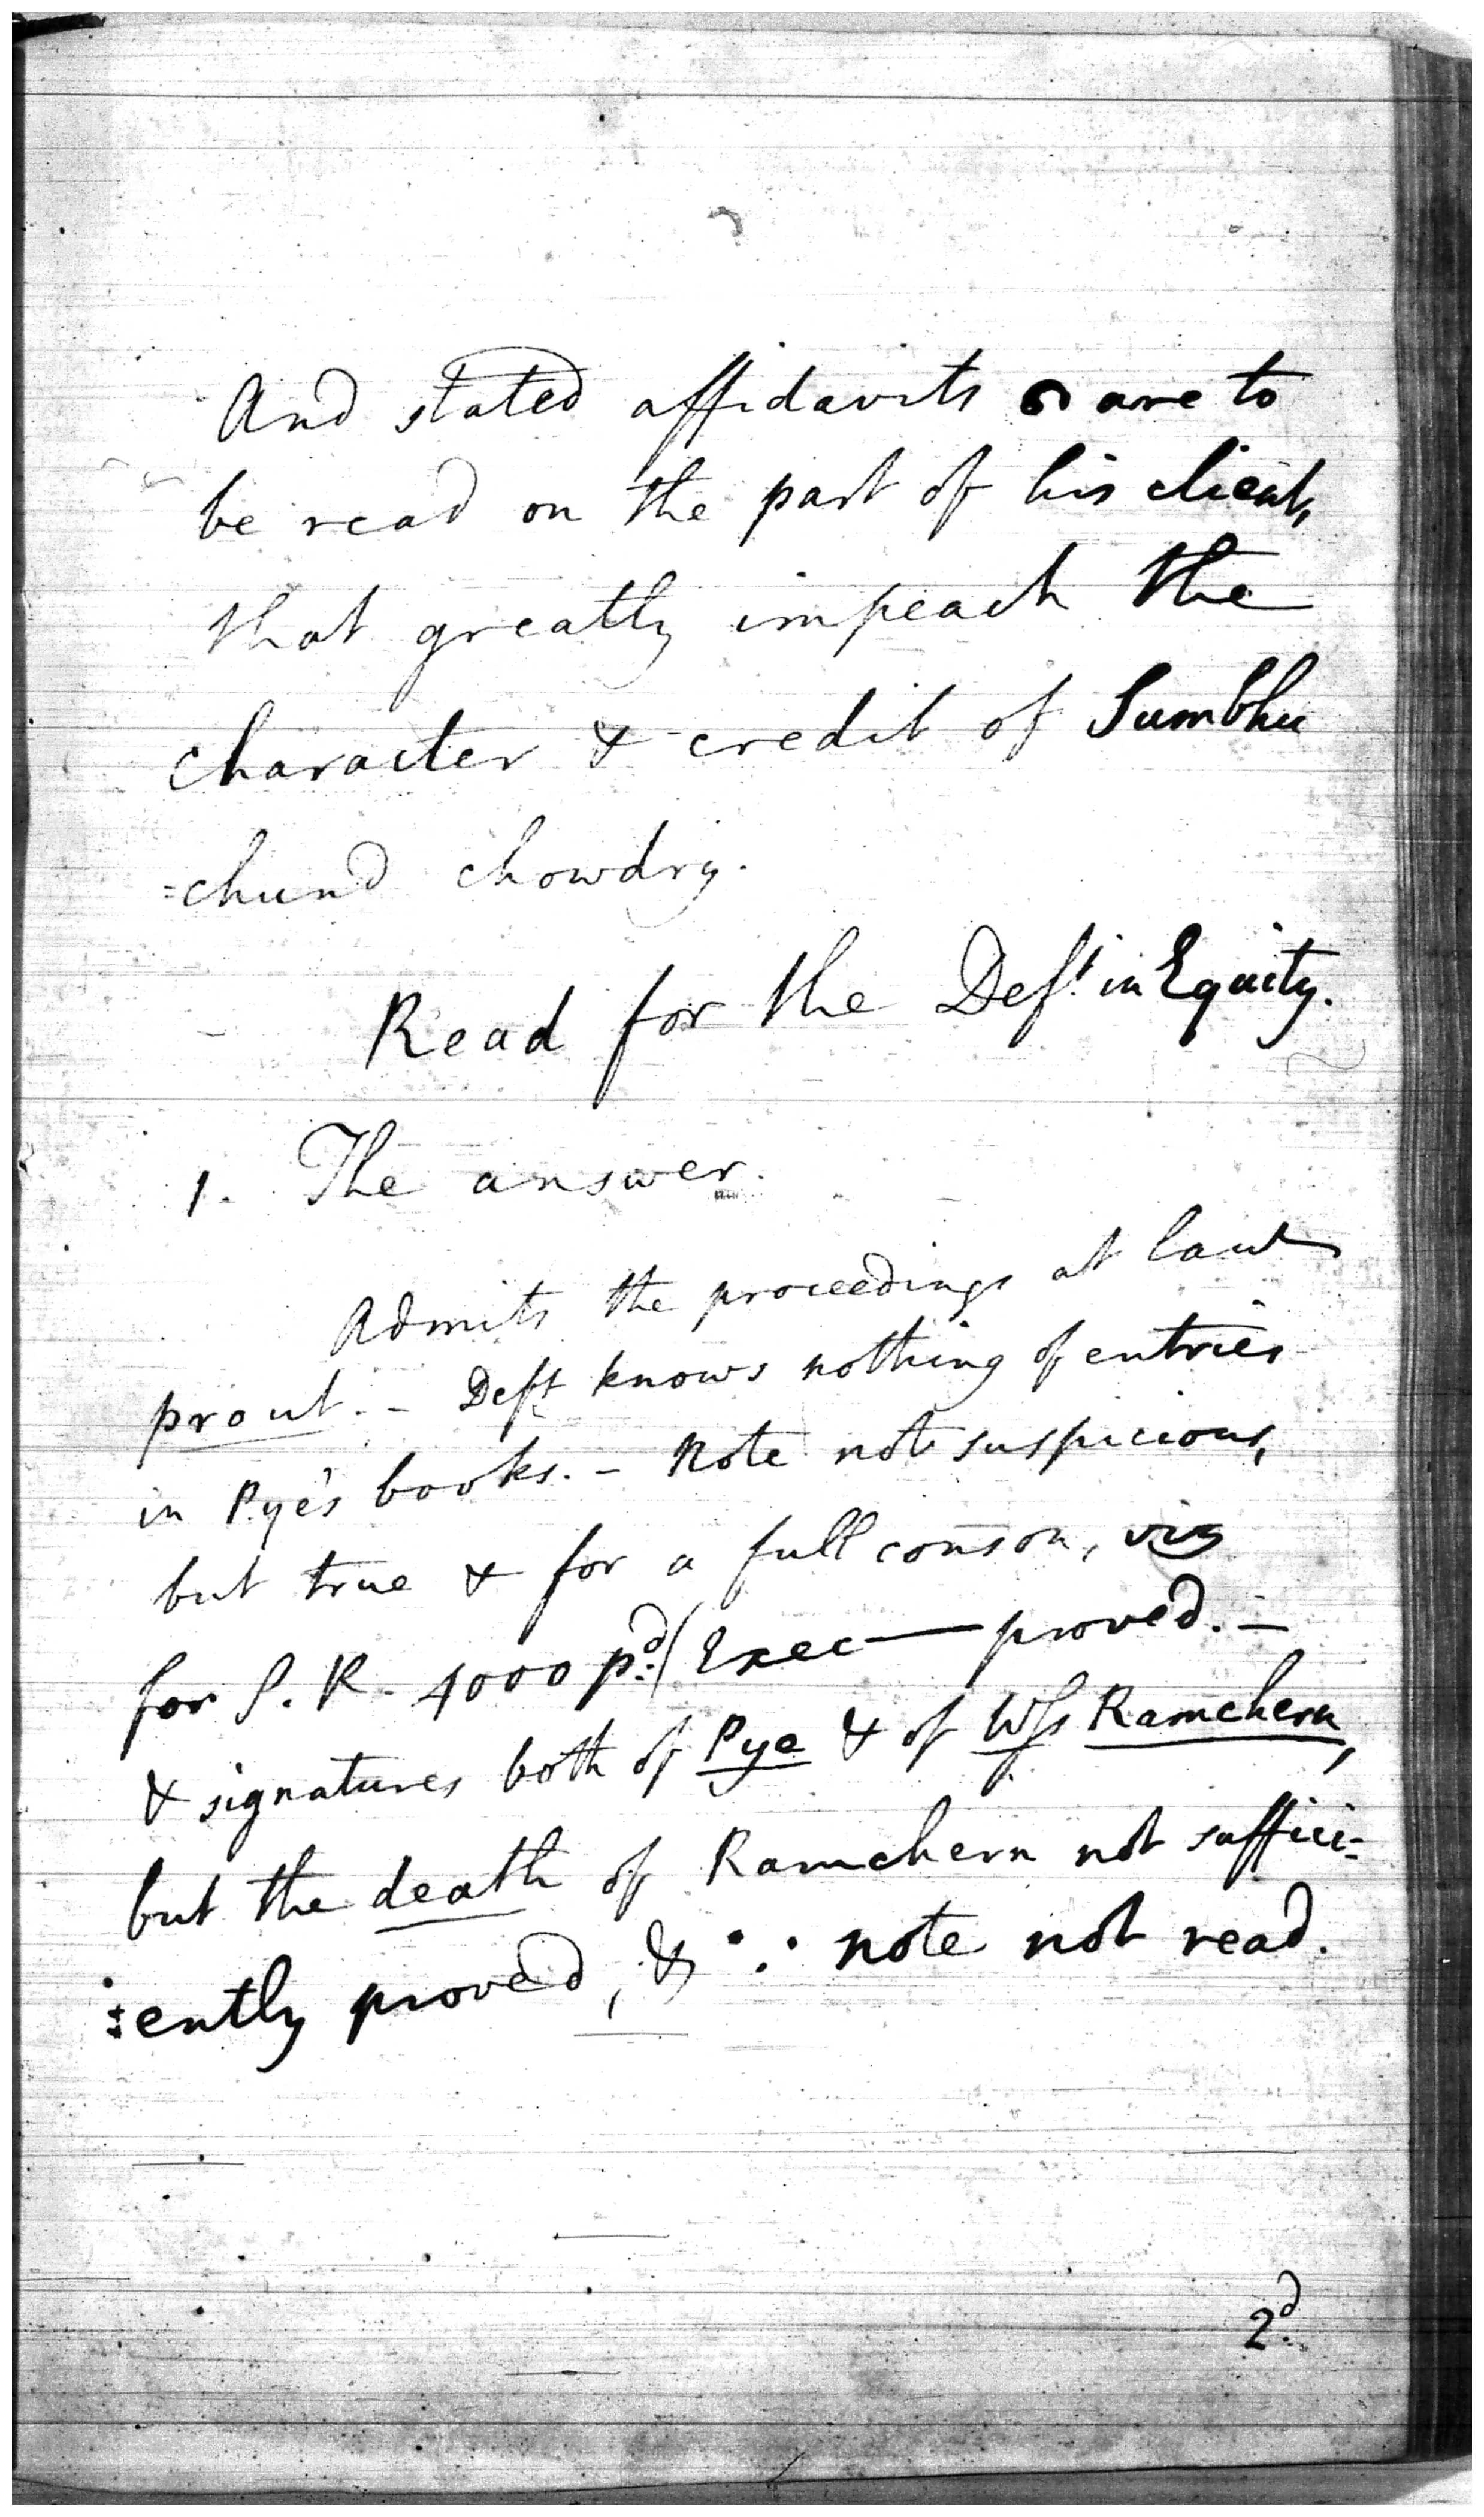 And stated affidavits are to
be read on the part of his client,
that greatly impeach the
character & credit of Sumbhu
=chund Chowdry.
Read for the Deft. in Equity.
1. The answer.
Admits the proceedings at law
prout. - Deft knows nothing of entries
in Pye's books. - Note not suspicious,
but true & for a full conson, viz
for S. R. 4000 pd./ Exec— proved. -
& signatures both of Pye & of Wss Ramchern,
but the death of Ramchern not suffici-
:ently proved, & ∵ note not read.
2d.